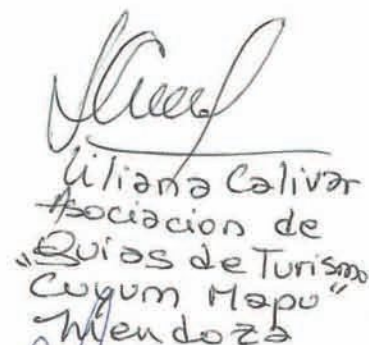 Liliana Calivar
Asociacion de
"Guias de Turismo
Cuyum Mapu"
Mendoza